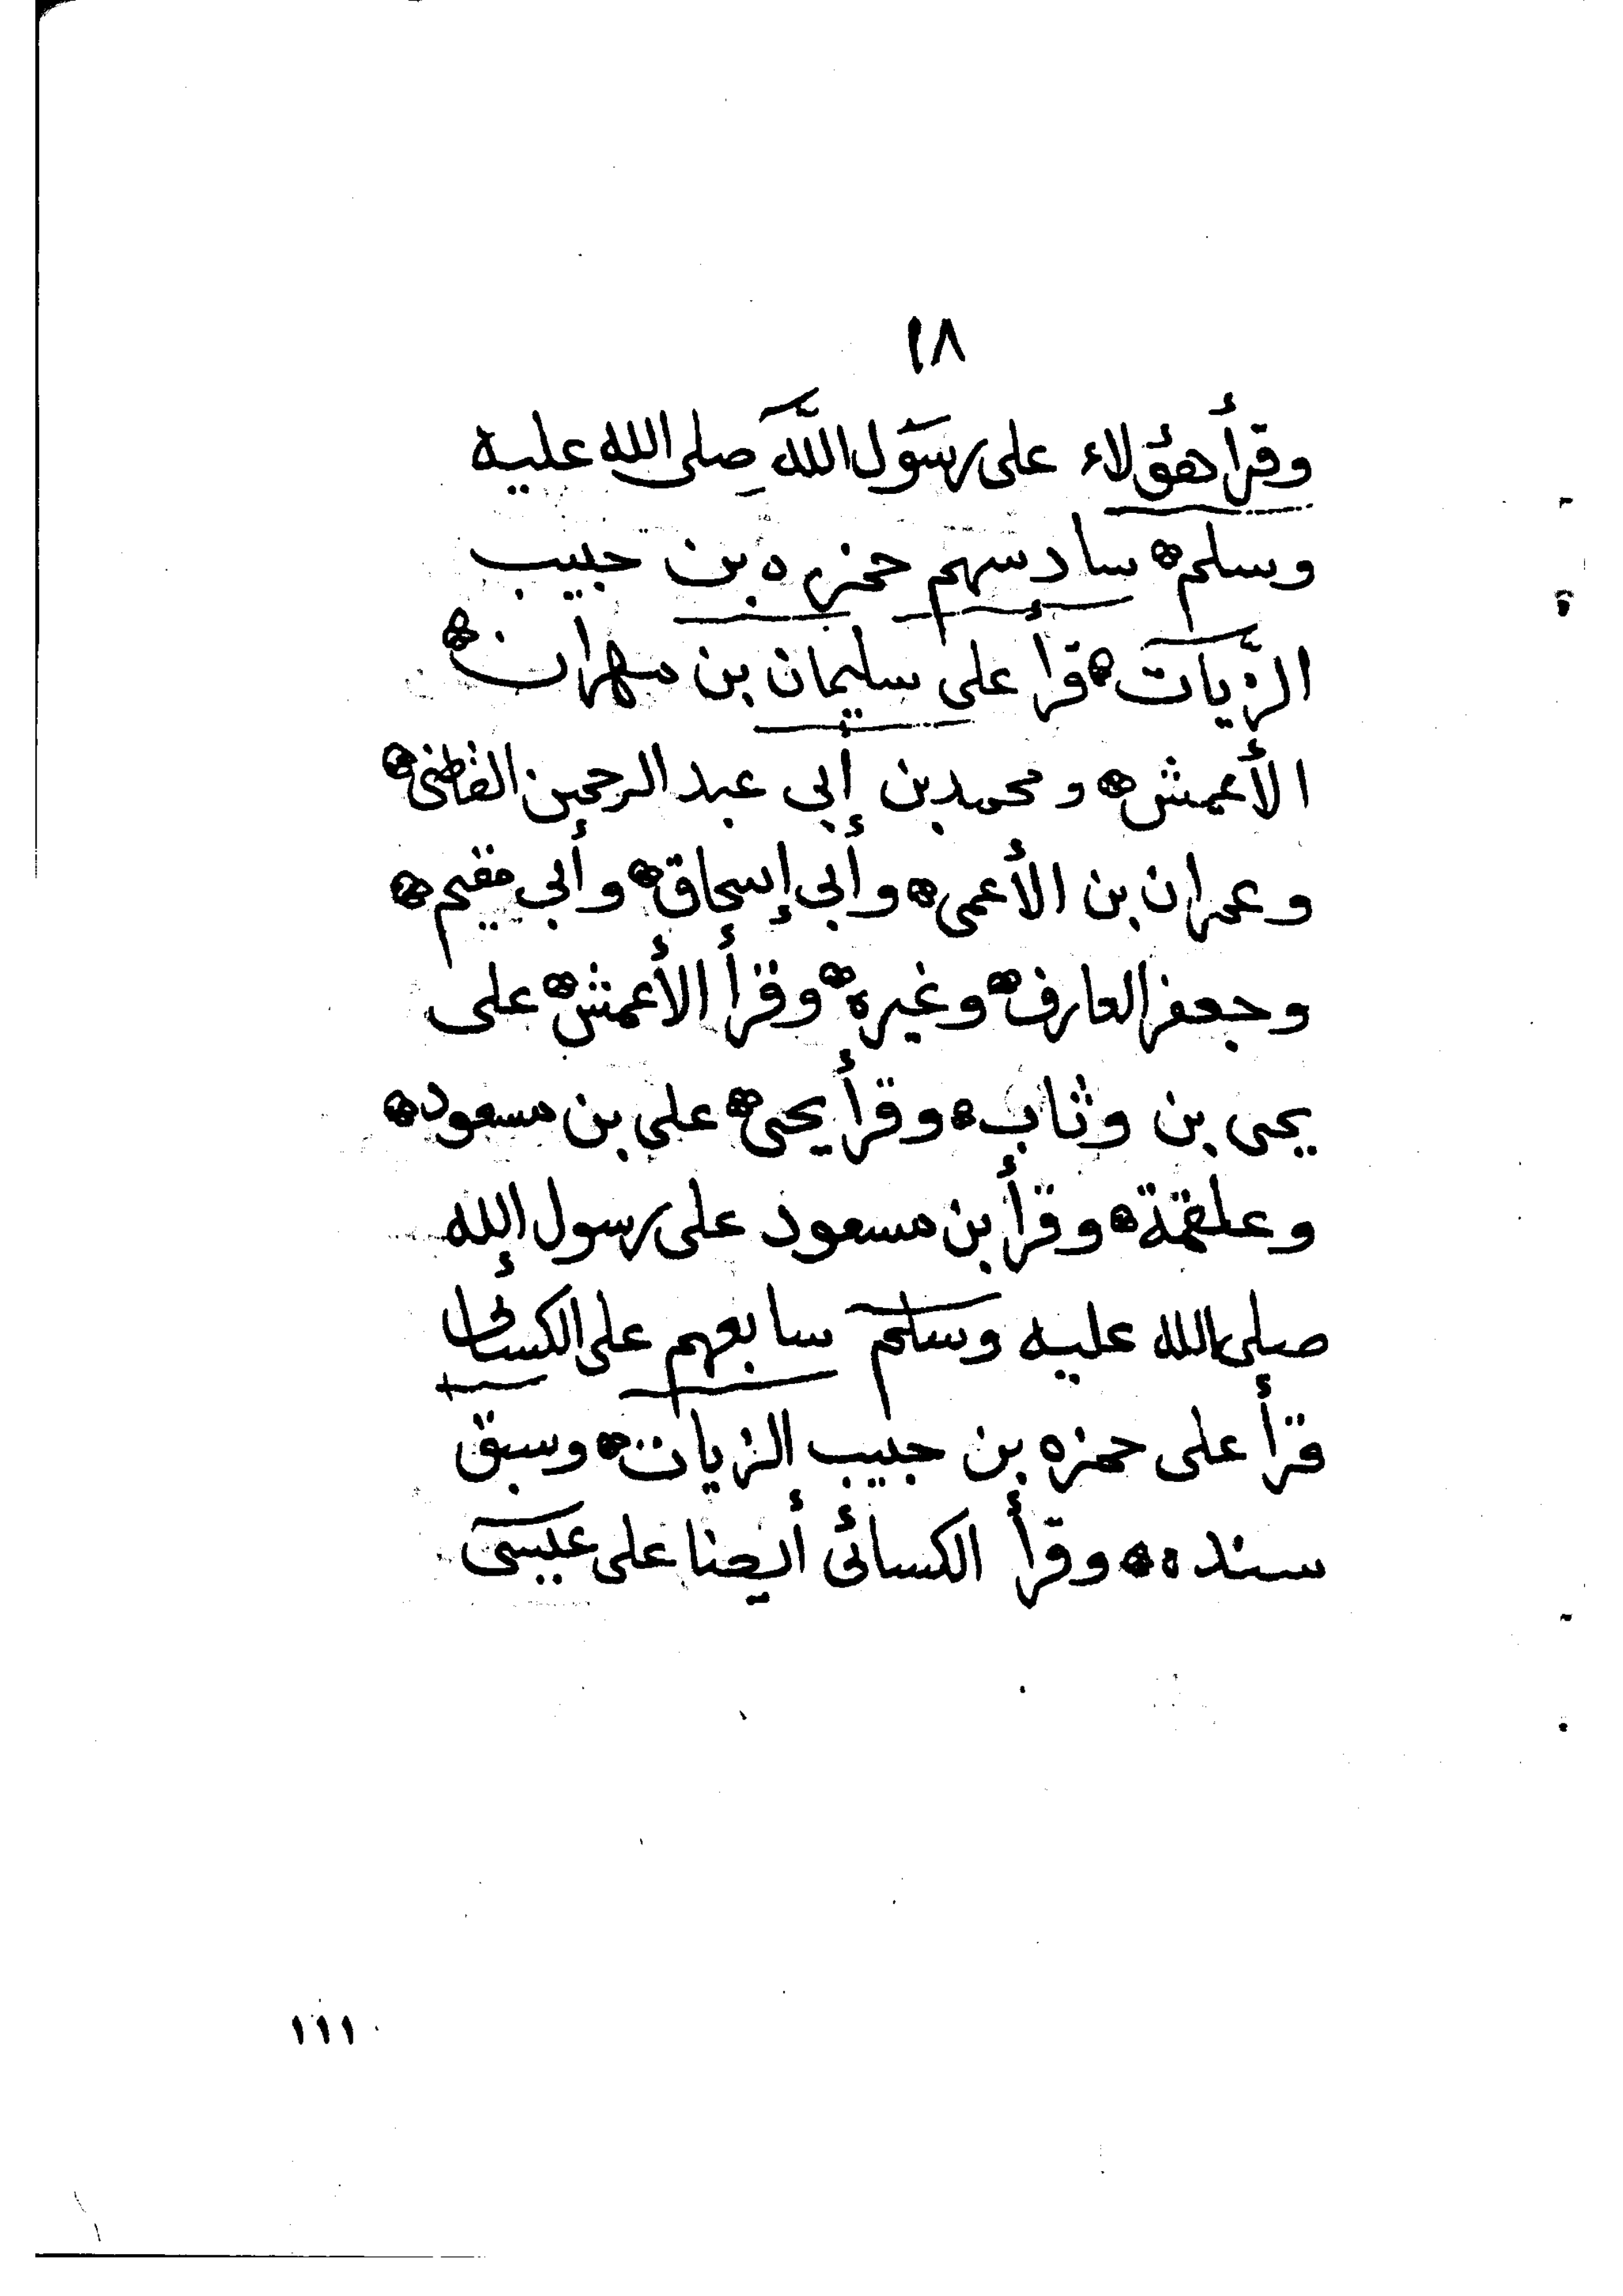 ١٨
وقرأ هؤلاء على رسول اللَّه صلى الله عليه
وسلم سادسهم حمزه بن حبيب
الزّيات قرأ على سليمان بن مهران
الأعمش ومحمد بن أبي عبد الرحمن القاضي
وعمران بن الأعمى وأبي إسحاق وأبي مقيم
وجعفر العارف وغيره وقرأ الأعمش على
يحى بن وثاب وقرأ يحى على بن مسعود
وعلقمة وقرأ بن مسعود على رسول الله
صلى الله عليه وسلم سابعهم على الكسائى
قرأ على حمزه بن حبيب الزيات وسبق
سنده وقرأ الكسائى أيضا على عيسى
١١١